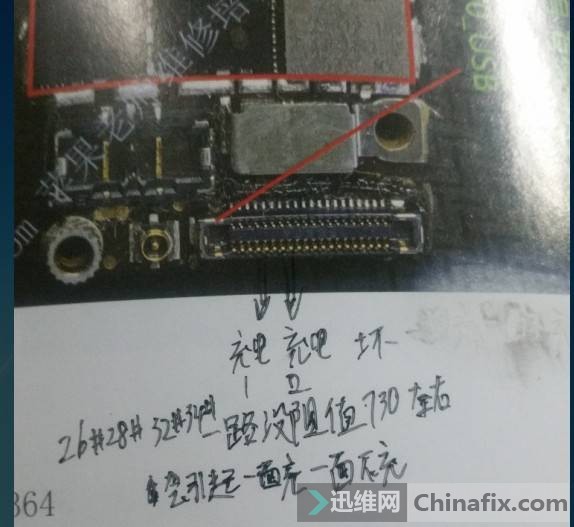 USB
苹果老 维修培
com
充电 充电 坏
I II
26# 28# 32# 34# 一路没阻值730左右
会引起一面充一面不充
364
迅维网 Chinafix.com